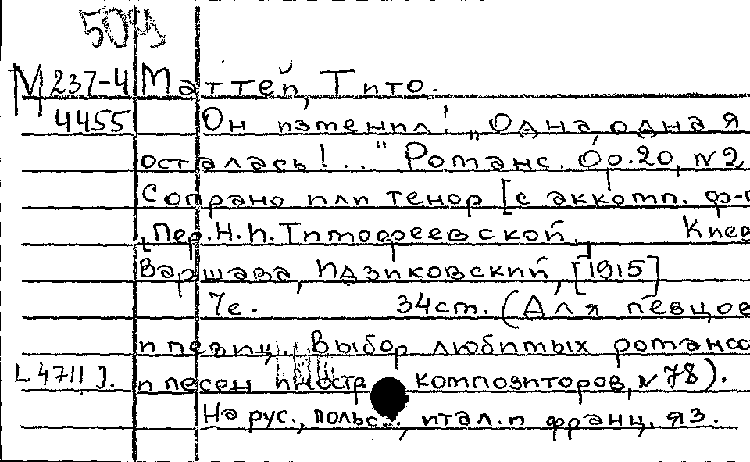 50
М 237-4 Маттей, Тито.
4455 Он изменил! „Одна, одна я
осталась!.." Романс. Op. 20, N 2
Сопрано или тенор [с аккомп. ф-п
Пер. Н.И. Тимофеевской, Киев
Варшава, Идзиковский, [1915]
7с. 34 см. (Для певцов
и певиц. Выбор любимых романсо
[4711]. и песен иностр композиторов, N 78).
На рус., польс., итал. и франц. яз.